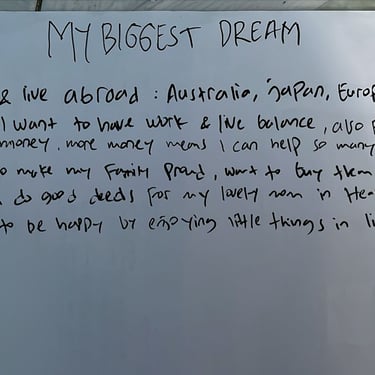 MY BIGGEST DREAM
& live abroad : Australia, Japan, Europ
I want to have work & live balance, also
money, more money means I can help so many
make my Family Proud, want to buy them
do good deeds for my lovely mom in Hea
to be happy by enjoying little things in li